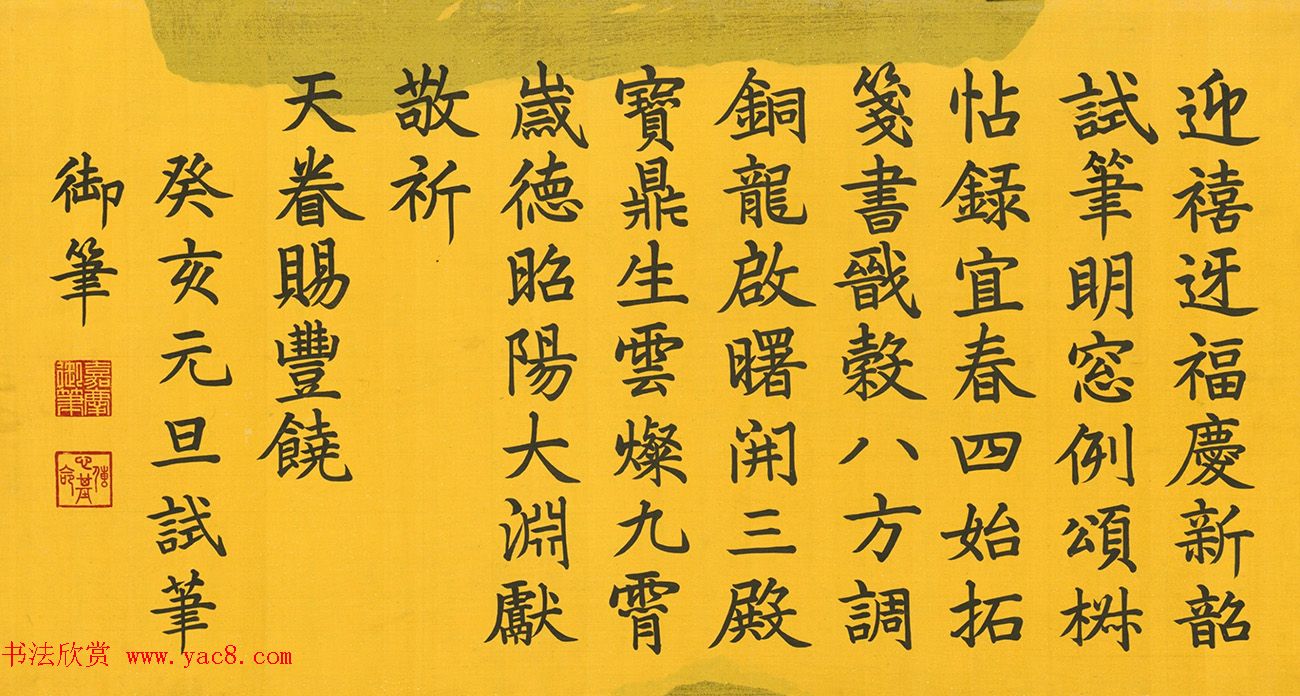 迎禧迓福慶新韶
試筆明窓例頌椒
帖録宜春四始拓
箋書戩穀八方調
銅龍啟曙開三殿
寶鼎生雲燦九霄
歲德昭陽大淵獻
敬祈
天眷賜豐饒
癸亥元旦試筆
御筆
嘉慶御筆
書法欣赏 www.yac8.com